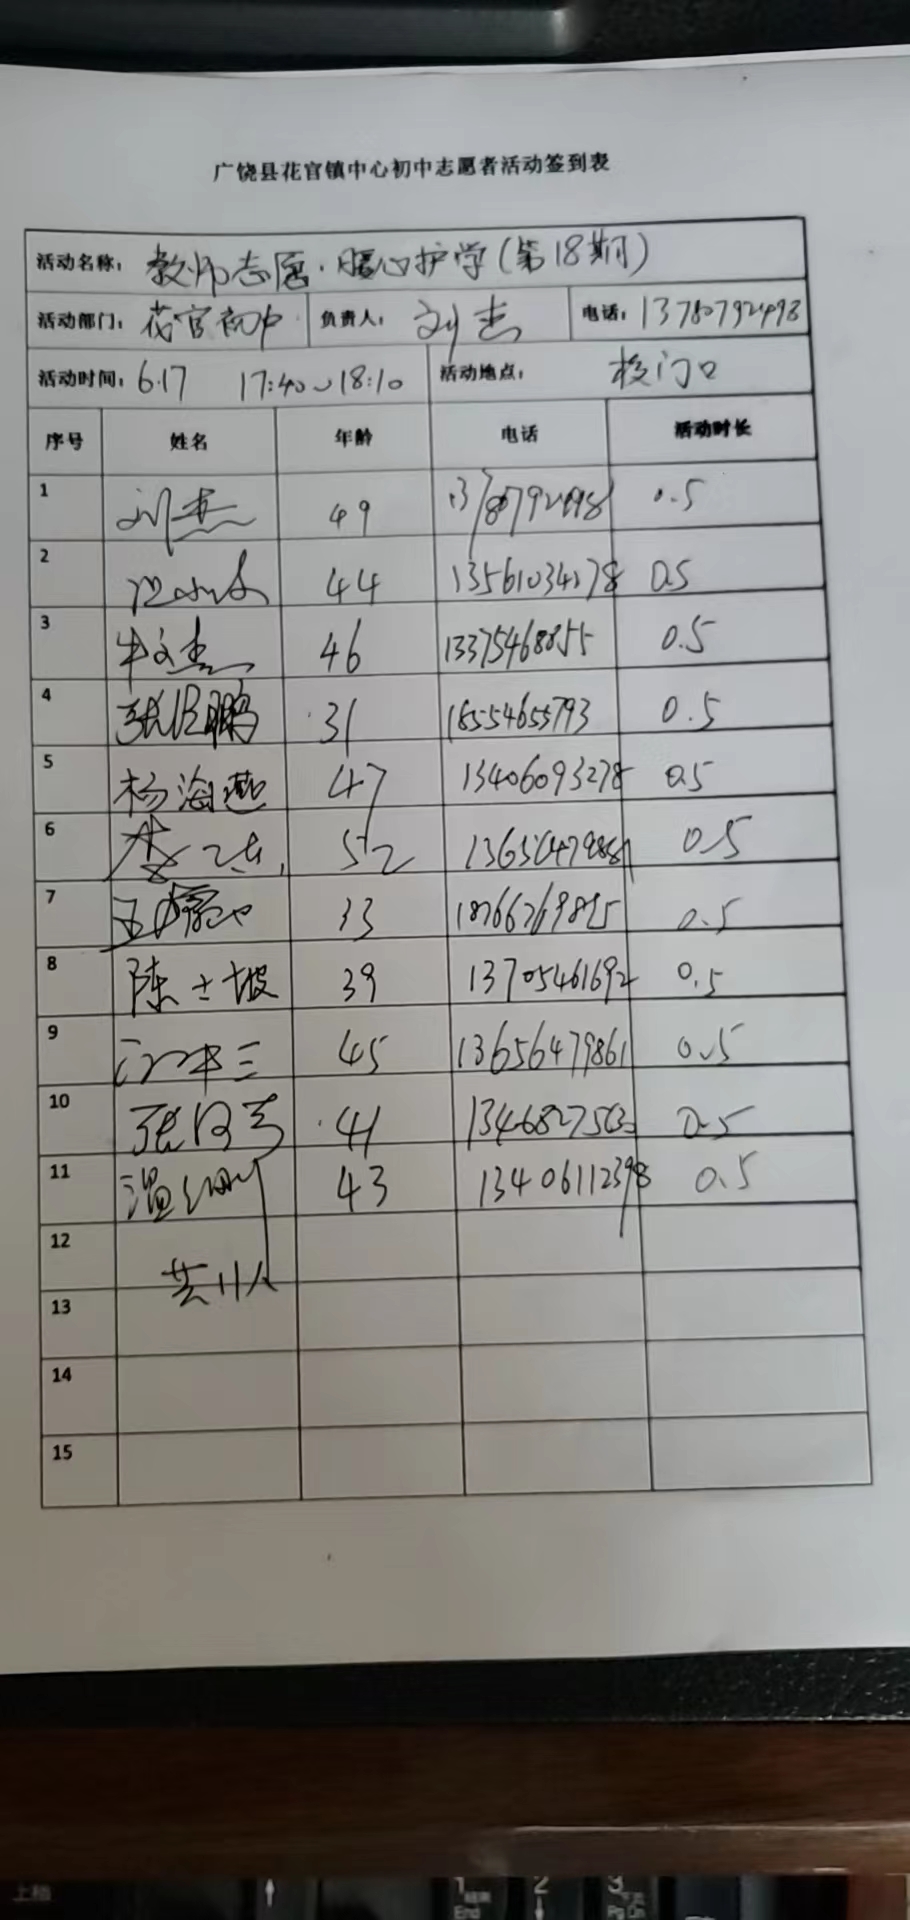 广饶县花官镇中心初中志愿者活动签到表
活动名称： 教师志愿·暖心护学（第18期）
活动部门： 花官初中 负责人： 刘杰 电话： 13780792498
活动时间： 6.17 17:40～18:10 活动地点： 校门口
序号 姓名 年龄 电话 活动时长
1 刘杰 49 13780792498 0.5
2 44 0.5
3 46 13375468055 0.5
4 鹏 31 18554655793 0.5
5 杨海燕 47 13406093278 0.5
6 李 52 0.5
7 33 0.5
8 陈士坡 39 13705461692 0.5
9 45 13656479861 0.5
10 张 41 0.5
11 温 43 13406112398 0.5
12
共11人
13
14
15
上档 ↑ 1 End 2 ↓ 3 Pg Dn